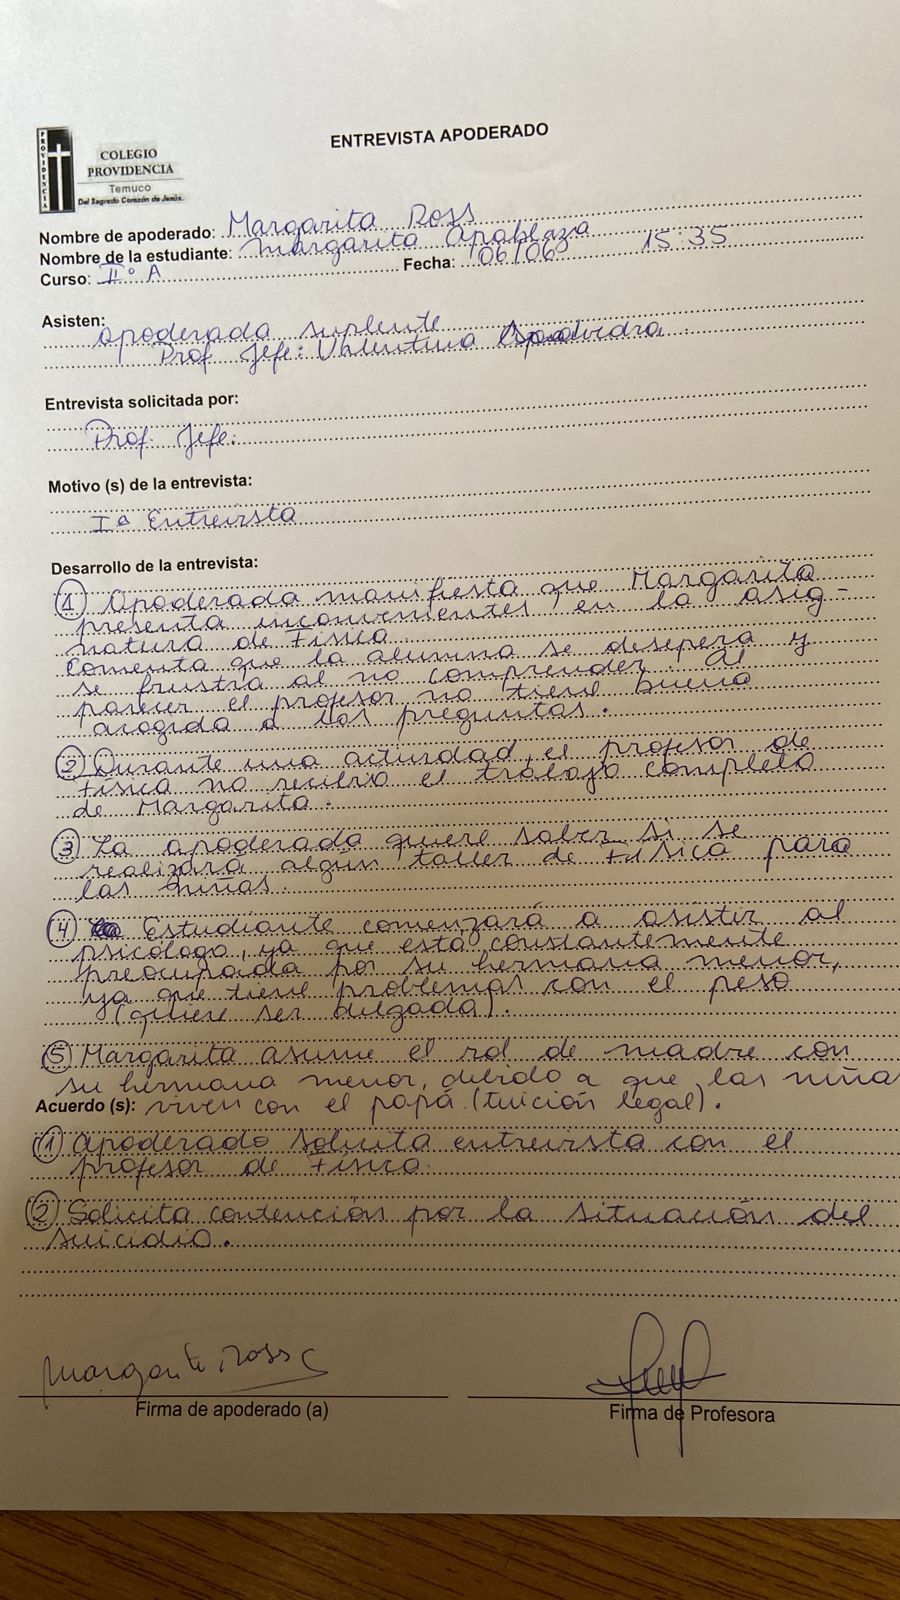 ENTREVISTA APODERADO
PROVIDENCIA
COLEGIO
PROVIDENCIA
Temuco
Del Sagrado Corazón de Jesús.
Nombre de apoderado: Margarita Ross
Nombre de la estudiante: Margarita Apablaza
Curso: IIº A Fecha: 06/06 15:35
Asisten:
Apoderada suplente
Prof. Jefe: Valentina
Entrevista solicitada por:
Prof. Jefe.
Motivo (s) de la entrevista:
Iª Entrevista
Desarrollo de la entrevista:
① Apoderada manifiesta que Margarita
presenta inconvenientes en la asig-
natura de Física.
Comenta que la alumna se desespera y
se frustra al no comprender. Al
parecer el profesor no tiene buena
acogida a las preguntas.
② Durante una actividad, el profesor de
Física no recibió el trabajo completo
de Margarita.
③ La apoderada quiere saber si se
realizará algún taller de Física para
las niñas.
④ Estudiante comenzará a asistir al
psicólogo, ya que está constantemente
preocupada por su hermana menor,
ya que tiene problemas con el peso
(quiere ser delgada).
⑤ Margarita asume el rol de madre con
su hermana menor, debido a que las niñas
viven con el papá (tuición legal).
Acuerdo (s):
① Apoderado solicita entrevista con el
profesor de Física.
② Solicita contención por la situación del
suicidio.
Margarita Ross
Firma de apoderado (a)
Firma de Profesora